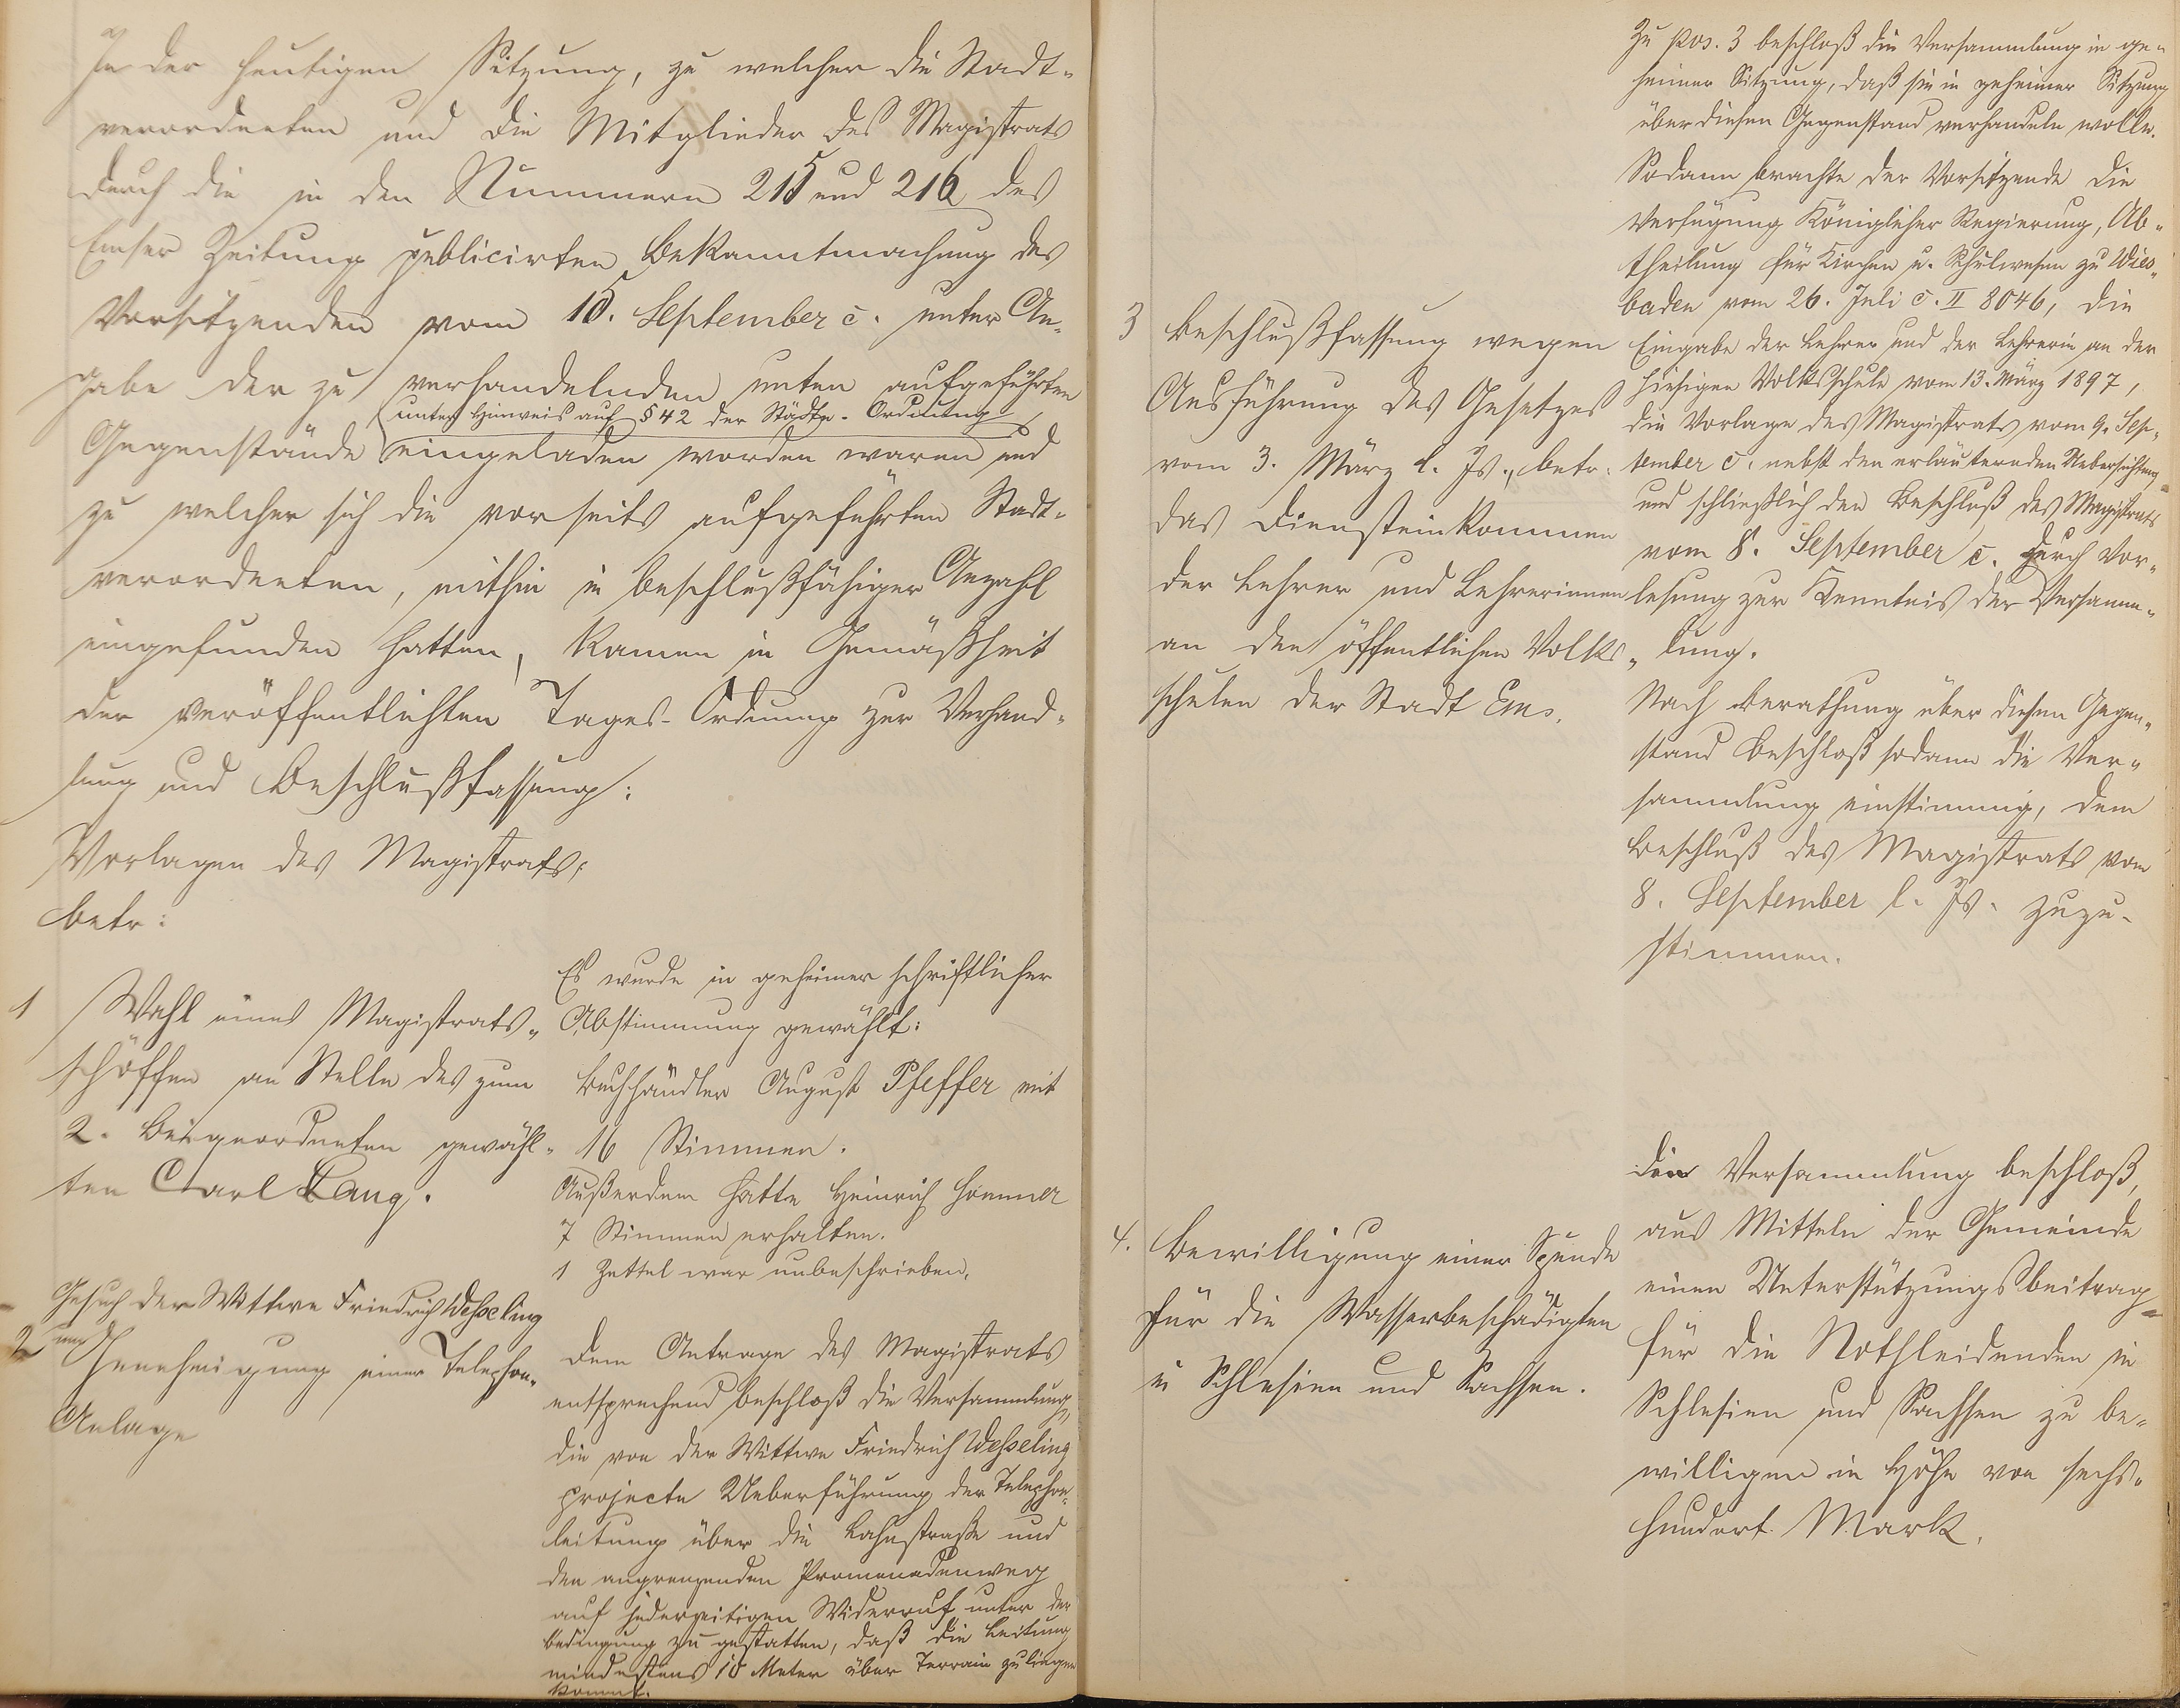 In der heutigen Sitzung, zu welcher die Stadt-
verordneten und die Mitglieder des Magistrats
durch die in den Nummern 215 und 216 des
Emser Zeitung publicirten Bekanntmachung des
Vorsitzenden vom 15. September c. unter An-
gabe der zu verhandelnden unten aufgeführten
unter Hinweis auf § 42 der Städte-Ordnung
Gegenstände eingeladen worden waren und
zu welcher sich die vorseits aufgeführten Stadt-
verordneten, mithin in beschlußfähiger Anzahl
eingefunden hatten, kamen in Gemäßheit
der veröffentlichten Tages-Ordnung zur Verhand-
lung und Beschlußfassung:
Vorlagen des Magistrats,
betr:
1 Wahl eines Magistrats-
schöffen an Stelle des zum
2. Beigeordneten gewähl-
ten Carl Lang.
Es wurde in geheimer schriftlicher
Abstimmung gewählt:
Buchhändler August Pfeffer mit
16 Stimmen.
Außerdem hatte Heinrich
7 Stimmen erhalten.
1 Zettel war unbeschrieben.
Gesuch der Wittwe Friedrich Wesseling
2 um
Genehmigung einer Telephon-
Anlage
Dem Antrage des Magistrats
entsprechend beschloß die Versammlung,
die von der Wittwe Friedrich Wesseling
projecte Ueberführung der Telephon-
leitung über die Lahnstraße und
den angrenzenden Promenadenweg
auf jederzeitigen Widerruf unter der
Bedingung zu gestatten, daß die Leitung
mindestens 10 Meter über Terrain zu liegen
kommt.
3 Beschlußfassung wegen
Ausführung des Gesetzes
vom 3. März l. Js., betr.
das Diensteinkommen
der Lehrer und Lehrerinnen
an den öffentlichen Volks-
schulen der Stadt Ems.
Zu pos. 3 beschloß die Versammlung in ge-
heimer Sitzung, daß sie in geheimer Sitzung
über diesen Gegenstand verhandeln wolle.
Sodann brachte der Vorsitzende die
Verfügung Königlicher Regierung, Ab-
theilung für Kirchen u. Schulwesen zu Wies-
baden vom 26. Juli c. II 8046, die
Eingabe der Lehrer und der Lehrerin an der
hiesigen Volksschule vom 13. März 1897,
die Vorlage des Magistrats vom 9. Sep-
tember c. nebst den erläuternden Uebersichten
und schließlich den Beschluß des Magistrats
vom 8. September c. durch Vor-
lesung zur Kenntnis der Versamm-
lung.
Nach Berathung über diesen Gegen-
stand beschloß sodann die Ver-
sammlung einstimmig, dem
Beschluß des Magistrats vom
8. September l. Js. zuzu-
stimmen.
4. Bewilligung einer Spende
für die Wasserbeschädigten
in Schlesien und Sachsen.
Die Versammlung beschloß,
aus Mitteln der Gemeinde
einen Unterstützungsbeitrag
für die Nothleidenden in
Schlesien und Sachsen zu be-
willigen in Höhe von sechs-
hundert Mark.